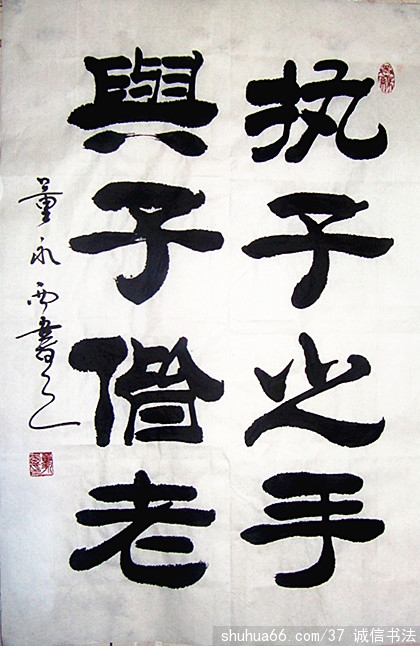 执子之手
與子偕老
董永西書之
shuhua66.com/37 诚信书法